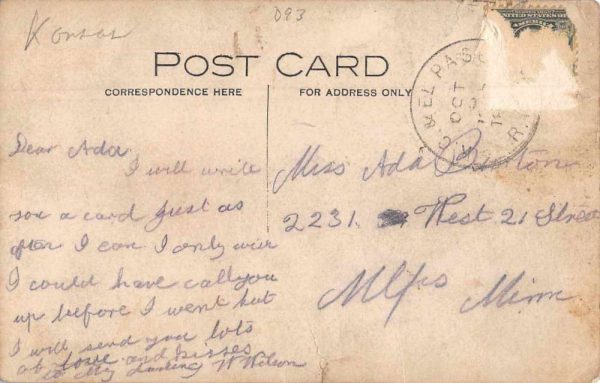 Kansas
D93
POST CARD
CORRESPONDENCE HERE
FOR ADDRESS ONLY
UNITED STATES OF
AMERICA
& EL PASO
OCT
R.P.O.
Dear Ada
I will write
you a card just as
often I can I only wish
I could have call you
up before I went but
I will send you lots
of love and kisses
to My Darling W Wilson
Miss Ada Burton
2231 West 21 Street
Mlps Minn